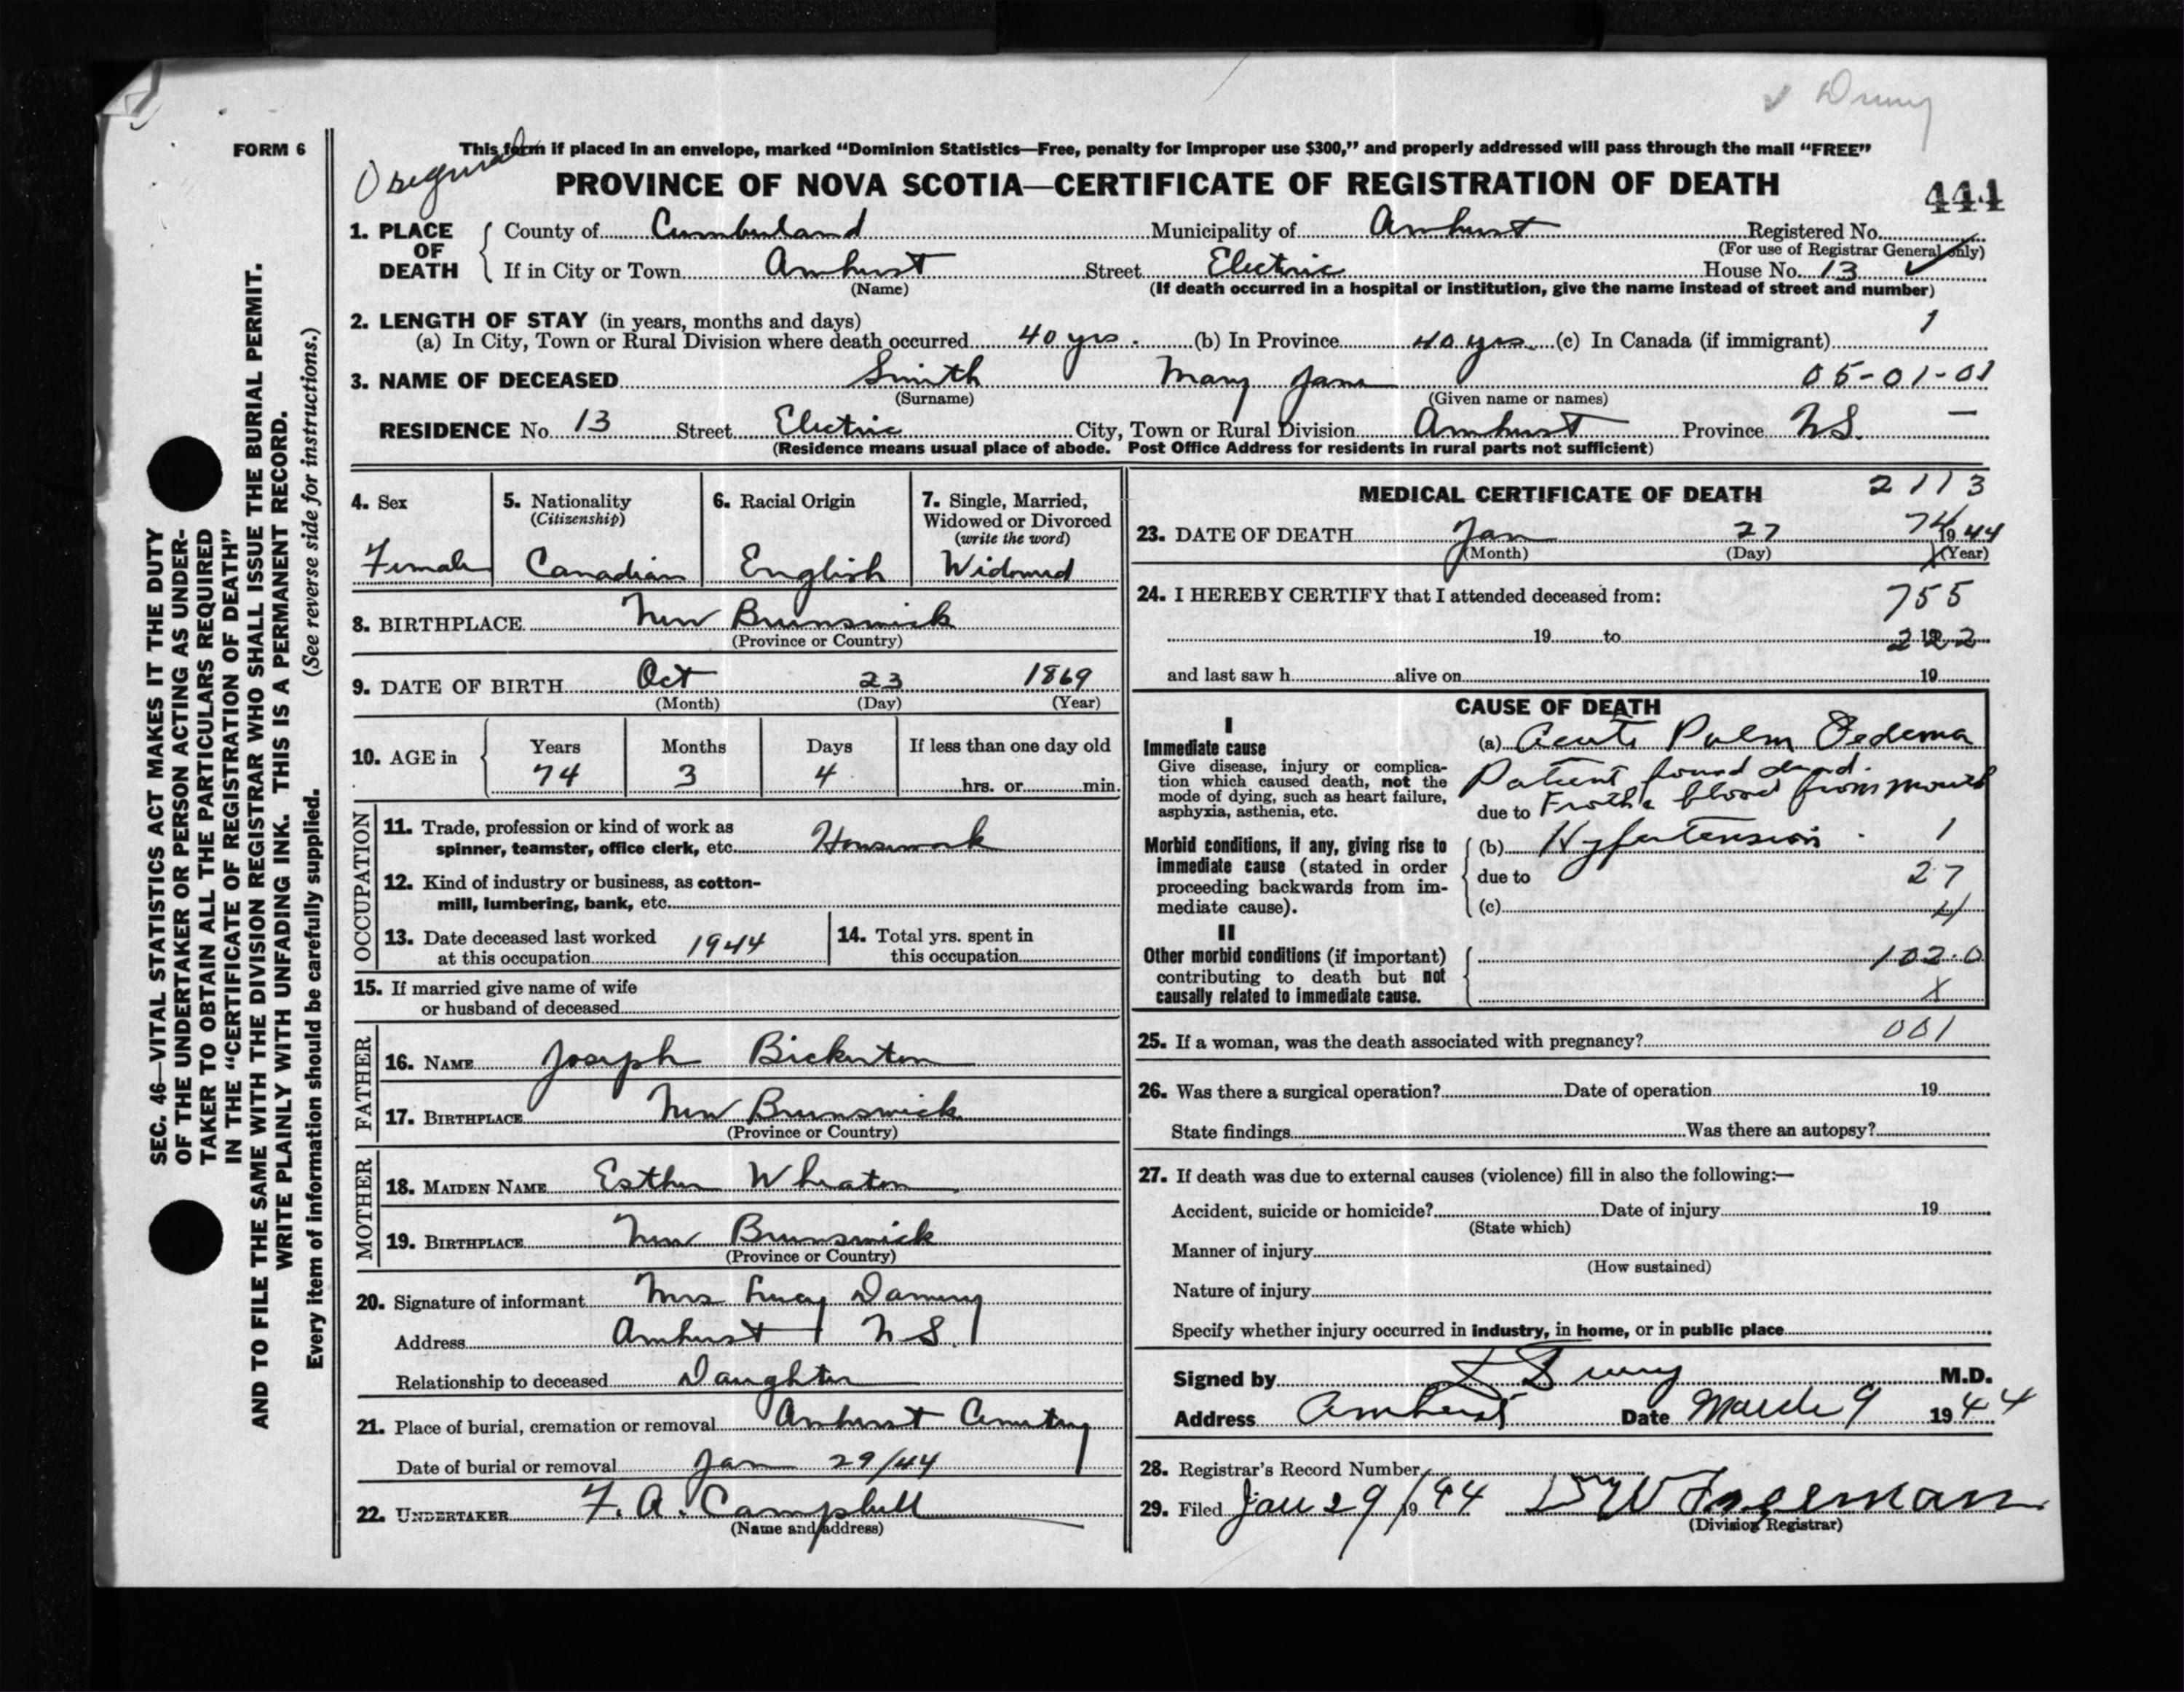 Drury
FORM 6
This form if placed in an envelope, marked “Dominion Statistics—Free, penalty for improper use $300,” and properly addressed will pass through the mail “FREE”
Original
PROVINCE OF NOVA SCOTIA—CERTIFICATE OF REGISTRATION OF DEATH
444
1. PLACE OF DEATH
County of Cumberland Municipality of Amherst Registered No.
(For use of Registrar General only)
If in City or Town Amherst Street Electric House No. 13
(Name) (If death occurred in a hospital or institution, give the name instead of street and number)
2. LENGTH OF STAY (in years, months and days) 1
(a) In City, Town or Rural Division where death occurred 40 yrs. (b) In Province 40 yrs. (c) In Canada (if immigrant)
3. NAME OF DECEASED Smith Mary Jane 05-01-01
(Surname) (Given name or names)
RESIDENCE No. 13 Street Electric City, Town or Rural Division Amherst Province N.S. —
(Residence means usual place of abode. Post Office Address for residents in rural parts not sufficient)
4. Sex
Female
5. Nationality
(Citizenship)
Canadian
6. Racial Origin
English
7. Single, Married,
Widowed or Divorced
(write the word)
Widowed
8. BIRTHPLACE New Brunswick
(Province or Country)
9. DATE OF BIRTH Oct 23 1869
(Month) (Day) (Year)
10. AGE in
Years Months Days If less than one day old
74 3 4 hrs. or min.
OCCUPATION
11. Trade, profession or kind of work as
spinner, teamster, office clerk, etc. Housework
12. Kind of industry or business, as cotton-
mill, lumbering, bank, etc.
13. Date deceased last worked
at this occupation 1944
14. Total yrs. spent in
this occupation
15. If married give name of wife
or husband of deceased
FATHER
16. NAME Joseph Bickerton
17. BIRTHPLACE New Brunswick
(Province or Country)
MOTHER
18. MAIDEN NAME Esther Wheaton
19. BIRTHPLACE New Brunswick
(Province or Country)
20. Signature of informant Mrs Lucy
Address Amherst N S.
Relationship to deceased Daughter
21. Place of burial, cremation or removal Amherst Cemetery
Date of burial or removal Jan 29/44
22. UNDERTAKER F. A. Campbell
(Name and address)
MEDICAL CERTIFICATE OF DEATH 2113
74
23. DATE OF DEATH Jan 27 1944
(Month) (Day) (Year)
24. I HEREBY CERTIFY that I attended deceased from: 755
19 to 19 222
and last saw h alive on 19
CAUSE OF DEATH
I
Immediate cause
Give disease, injury or complica-
tion which caused death, not the
mode of dying, such as heart failure,
asphyxia, asthenia, etc.
(a) Acute Pulm Oedema
Patient found dead.
due to Froth & blood from mouth
Morbid conditions, if any, giving rise to
immediate cause (stated in order
proceeding backwards from im-
mediate cause).
(b) Hypertension. 1
due to 27
(c) 4
II
Other morbid conditions (if important)
contributing to death but not
causally related to immediate cause.
102.0
X
25. If a woman, was the death associated with pregnancy? 001
26. Was there a surgical operation? Date of operation 19
State findings Was there an autopsy?
27. If death was due to external causes (violence) fill in also the following:—
Accident, suicide or homicide? Date of injury 19
(State which)
Manner of injury
(How sustained)
Nature of injury
Specify whether injury occurred in industry, in home, or in public place
Signed by Drury M.D.
Address Amherst Date March 9 1944
28. Registrar's Record Number
29. Filed Jan 29/1944
(Division Registrar)
SEC. 46—VITAL STATISTICS ACT MAKES IT THE DUTY
OF THE UNDERTAKER OR PERSON ACTING AS UNDER-
TAKER TO OBTAIN ALL THE PARTICULARS REQUIRED
IN THE “CERTIFICATE OF REGISTRATION OF DEATH”
AND TO FILE THE SAME WITH THE DIVISION REGISTRAR WHO SHALL ISSUE THE BURIAL PERMIT.
WRITE PLAINLY WITH UNFADING INK. THIS IS A PERMANENT RECORD.
Every item of information should be carefully supplied. (See reverse side for instructions.)